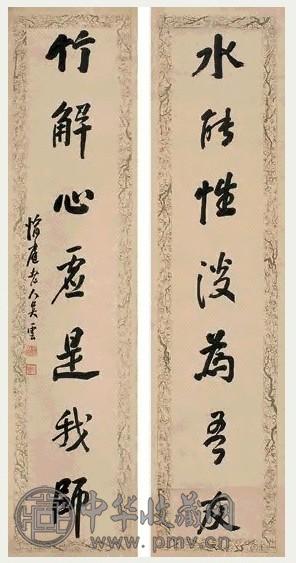 水能性淡為吾友
竹解心虛是我師
愉庭老人吳雲
中华收藏网
www.pmv.cn